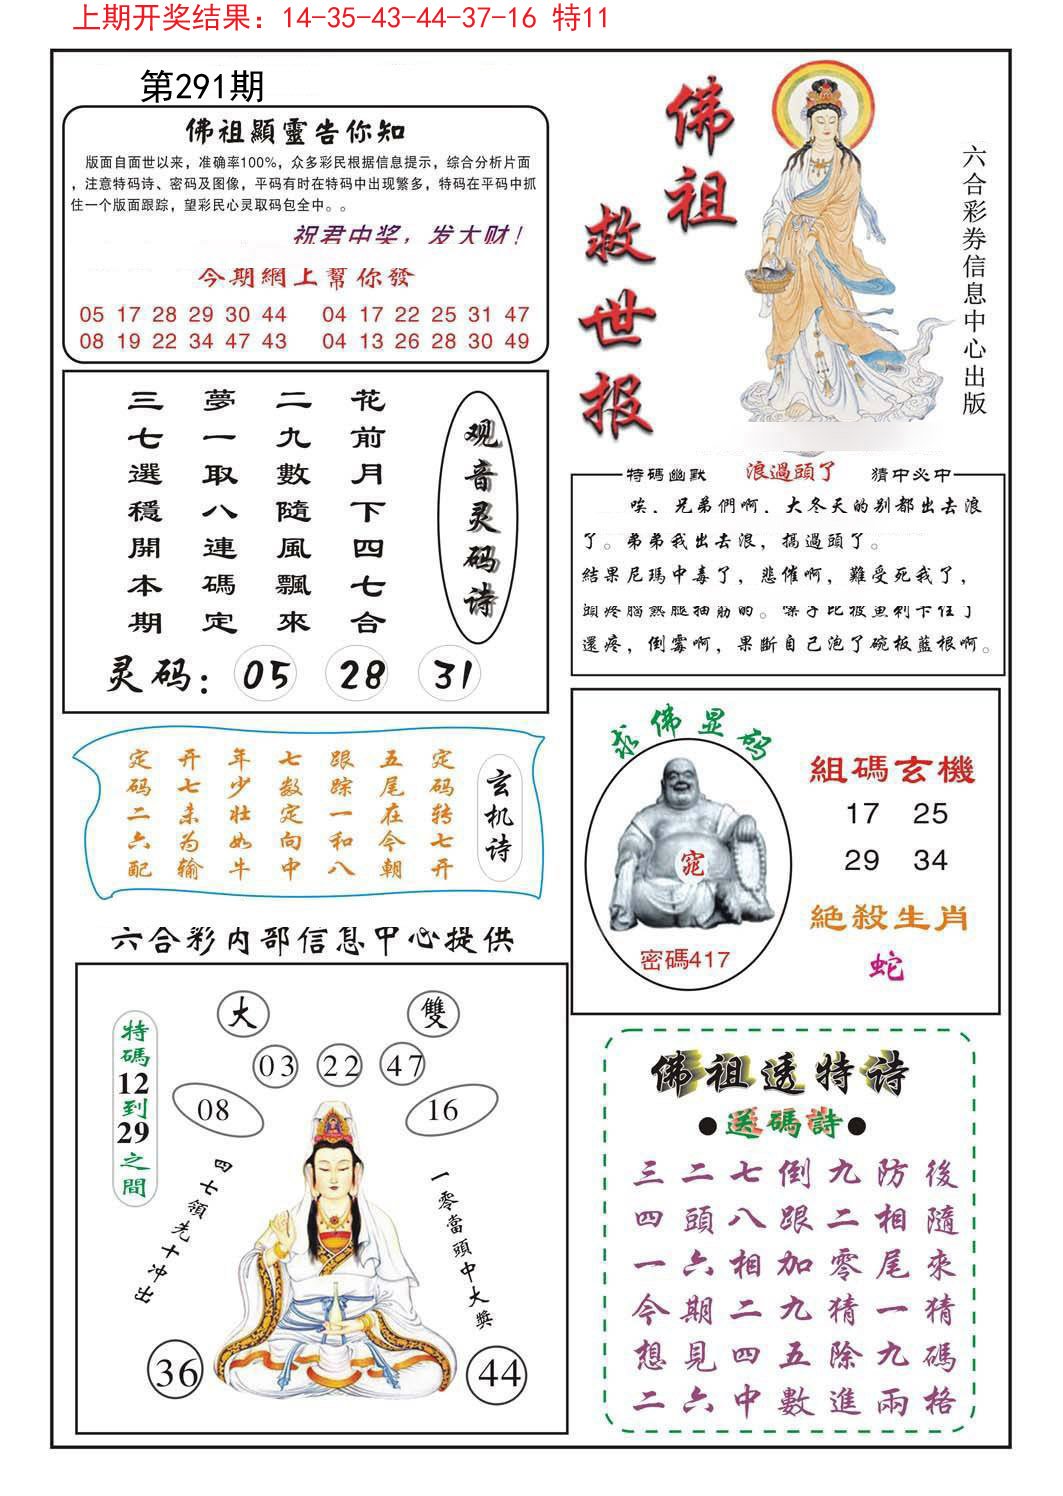 上期开奖结果：14-35-43-44-37-16 特11
第291期
佛祖顯靈告你知
版面自面世以来，准确率100%，众多彩民根据信息提示，综合分析片面
，注意特码诗、密码及图像，平码有时在特码中出现繁多，特码在平码中抓
住一个版面跟踪，望彩民心灵取码包全中。。
祝君中奖，发大财！
今期網上幫你發
05 17 28 29 30 44 04 17 22 25 31 47
08 19 22 34 47 43 04 13 26 28 30 49
佛祖
救世报
六合彩券信息中心出版
观音灵码诗
花前月下四七合
二九數隨風飄來
夢一取八連碼定
三七選穩開本期
灵码：05 28 31
特碼幽默 浪過頭了 猜中必中
唉．兄弟們啊．大冬天的别都出去浪
了。弟弟我出去浪，搞過頭了。
結果尼瑪中毒了，悲催啊，難受死我了，
頭疼腦熱腿抽筋的。嗓子比被魚刺卡住了
還疼，倒霉啊，果斷自己泡了碗板藍根啊。
玄机诗
定码转七开
五尾在今朝
跟踪一和八
七数定向中
年少壮如牛
开七未为输
定码二六配
求佛显码
窕
密碼417
組碼玄機
17 25
29 34
絕殺生肖
蛇
六合彩内部信息中心提供
大 雙
03 22 47
08 16
特碼12到29之間
四七領先十冲出
一零當頭中大獎
36 44
佛祖透特诗
●送碼詩●
三二七倒九防後
四頭八跟二相隨
一六相加零尾來
今期二九猜一猜
想見四五除九碼
二六中數進兩格